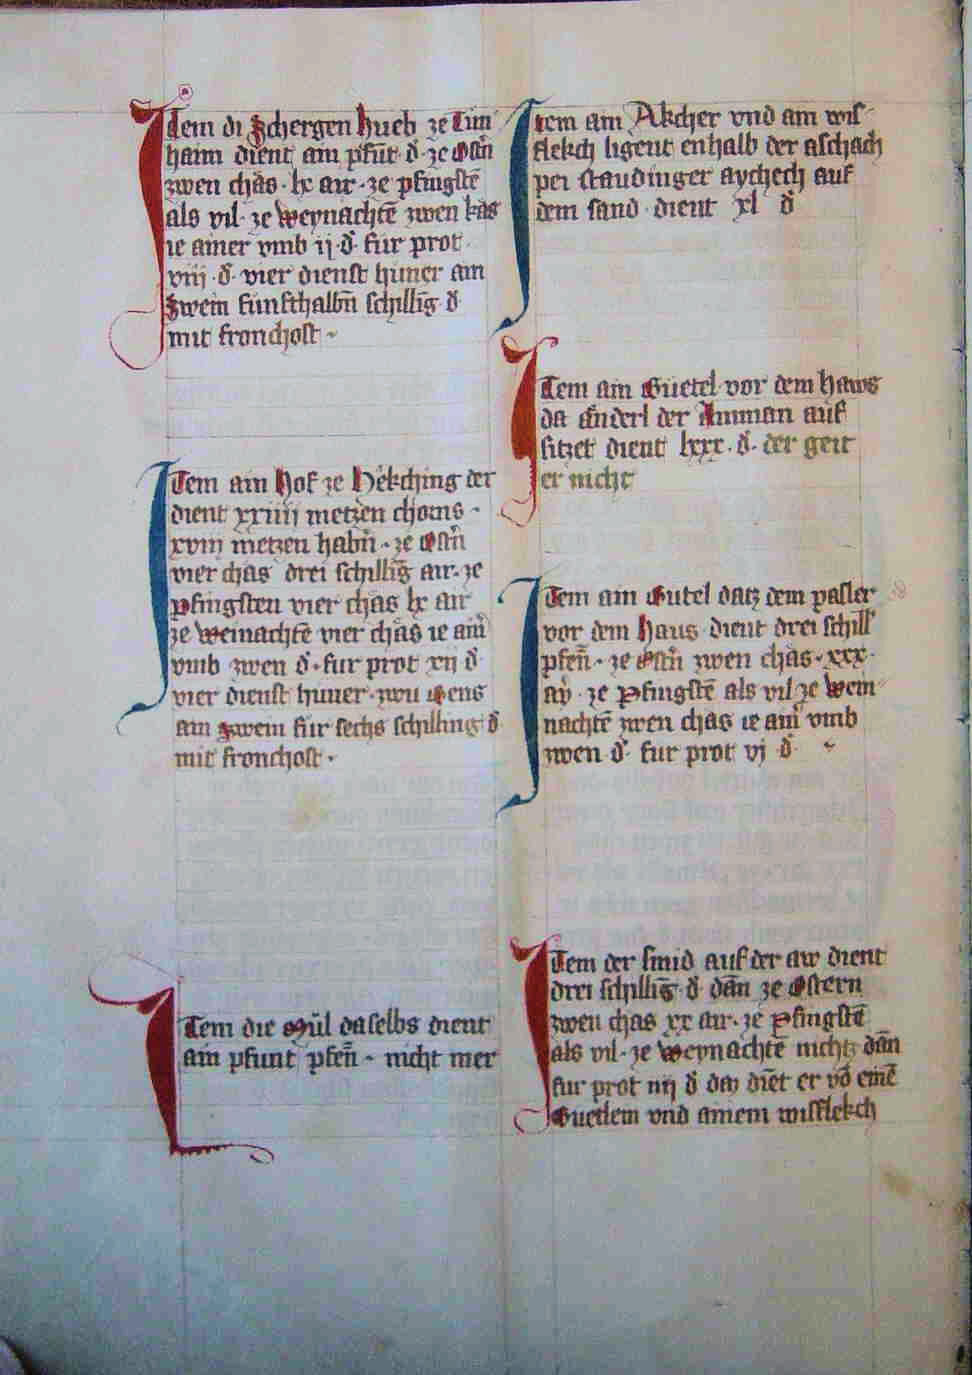 Item di Schergen Hueb ze Tim
haim dient ain pfūt · d · ze Ostn̄
zwen chäs · lx air · ze pfingstē
als vil · ze Weynachtē zwen käs
ie ainer vmb ij · d · für prot
viij · d · vier dienst hüner ain
Swein fünfthalbn̄ schilling d
mit fronchost ·
Item ain Hof ze Hekching der
dient xxiiij metzen chorns ·
xviij metzen habn̄ · ze Ostn̄
vier chas drei schilling air · ze
Pfingsten vier chäs lx air
ze Weinachtē vier chäs ie ain̄
vmb zwen d · fur prot xij d
vier dienst hüner · zwu Gens
ain Swein für sechs schilling d
mit fronchost ·
Item die Mül daselbs dient
ain pfunt pfen̄ · nicht mer
Item ain Akcher vnd ain wis
flekch ligent enhalb der aschach
pei staudinger aychech auf
dem sand · dient xl d
Item ain Güetel vor dem haws
da Anderl der Amman auf
sitzet dient lxxx · d · der geit
er nicht
Item ain Gutel datz dem paslér
vor dem Haus dient drei schill
pfen̄ · ze Ostn̄ zwen chäs · xxx ·
ay · ze Pfingstē als vil ze Wein
nachtē zwen chas ie ain̄ vmb
zwen d · fur prot vj d
Item der smid auf der aw dient
drei schilling · d dān ze Ostern
zwen chas xx air · ze Pfingstē
als vil · ze Weynachtē nichtz dān
fur prot iiij d daz diēt er vō einē
Guetlein vnd ainem wisflekch